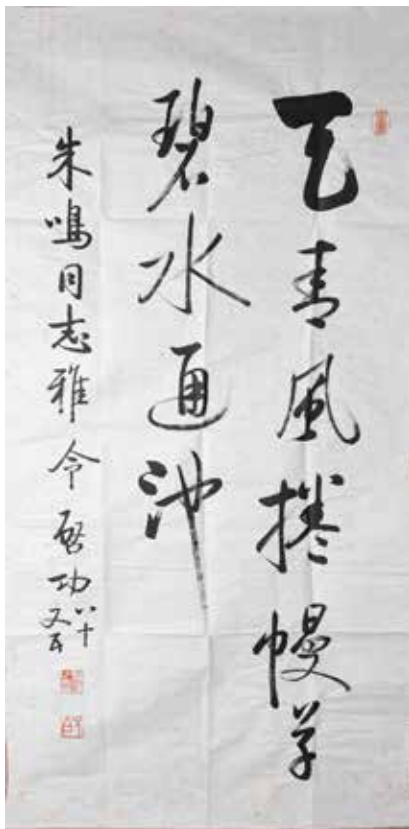 天青風捲幔草
碧水通池
朱鳴同志雅令 启功 八十又五